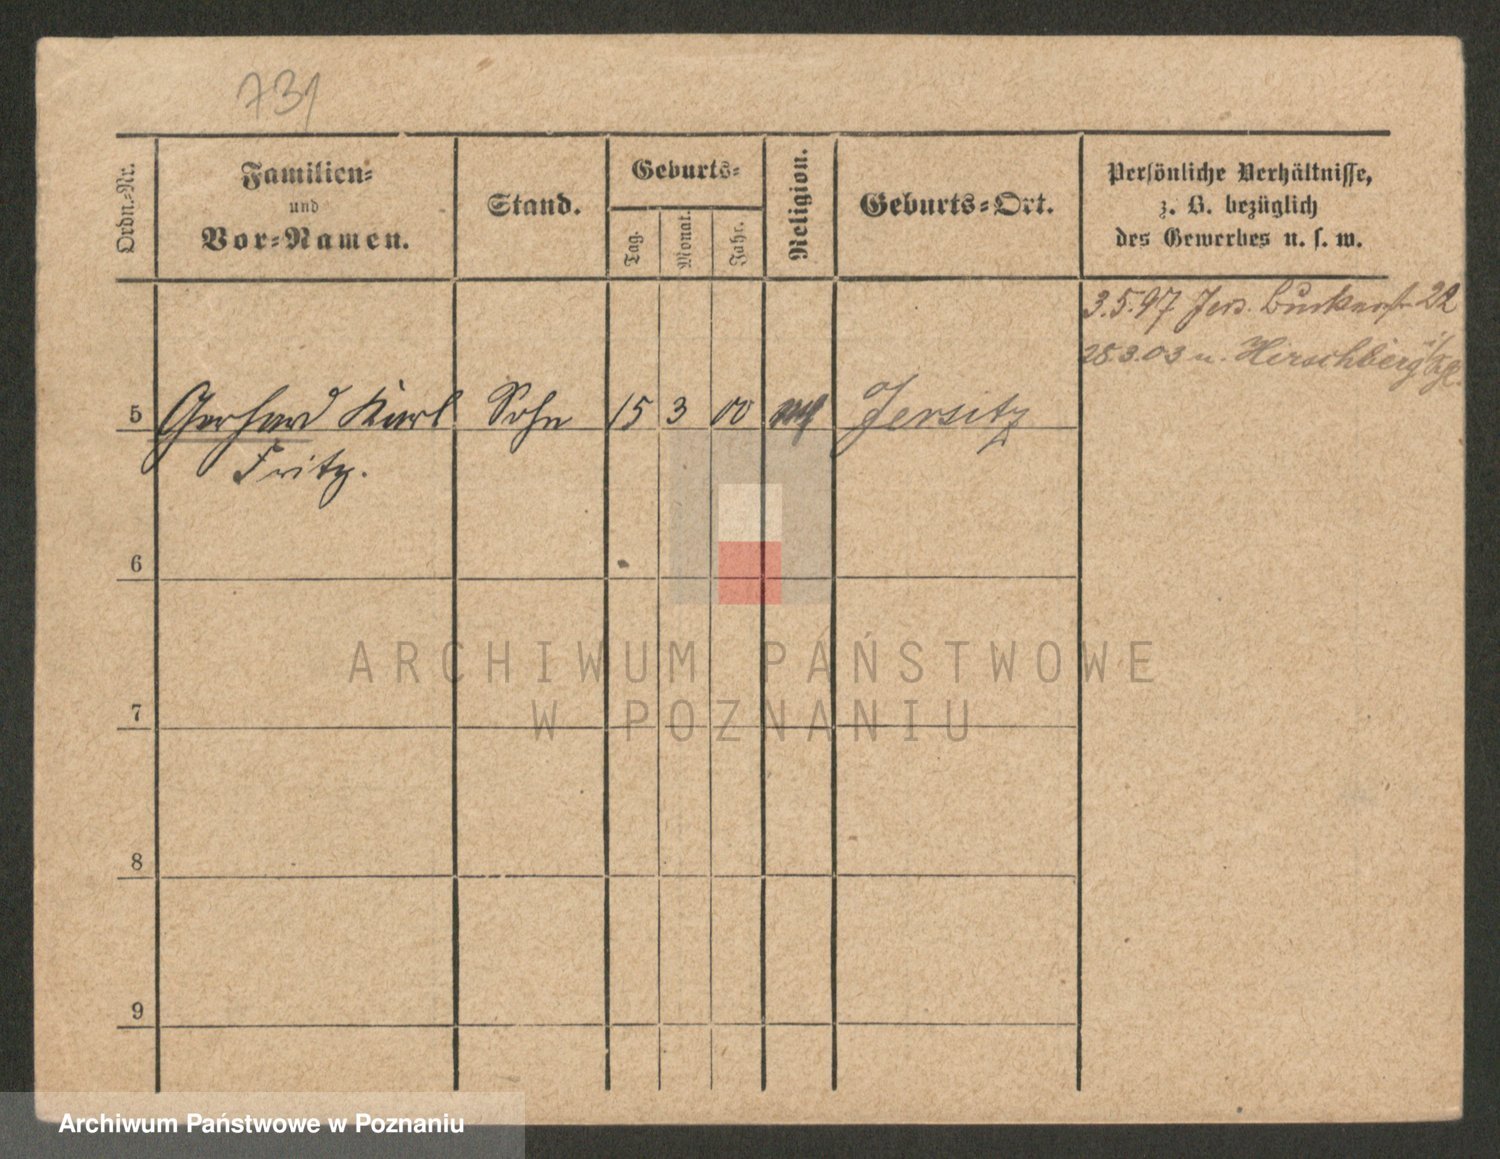 731
Ordn.-Nr.
Familien-
und
Vor-Namen.
Stand.
Geburts-
Tag.
Monat.
Jahr.
Religion.
Geburts-Ort.
Persönliche Verhältnisse,
z. B. bezüglich
des Gewerbes u. s. w.
3.5.97 Jers. 22
28.3.03 n. Hirschberg
5 Gerhard Karl Sohn 15 3 00 Jersitz
Fritz.
6
7
8
9
ARCHIWUM PAŃSTWOWE
W POZNANIU
Archiwum Państwowe w Poznaniu